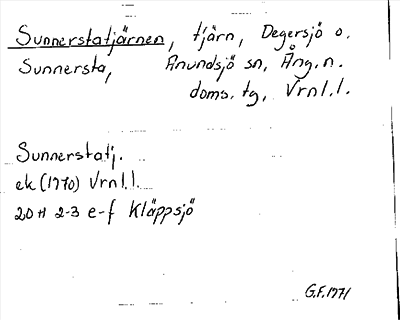 Sunnerstatjärnen, tjärn, Degersjö o.
Sunnersta, Anundsjö sn, Ång. n.
doms. tg, Vrnl.l.
Sunnerstatj.
ek (1970) Vrnl.l.
20 H 2-3 e-f Kläppsjö
G.F. 1971